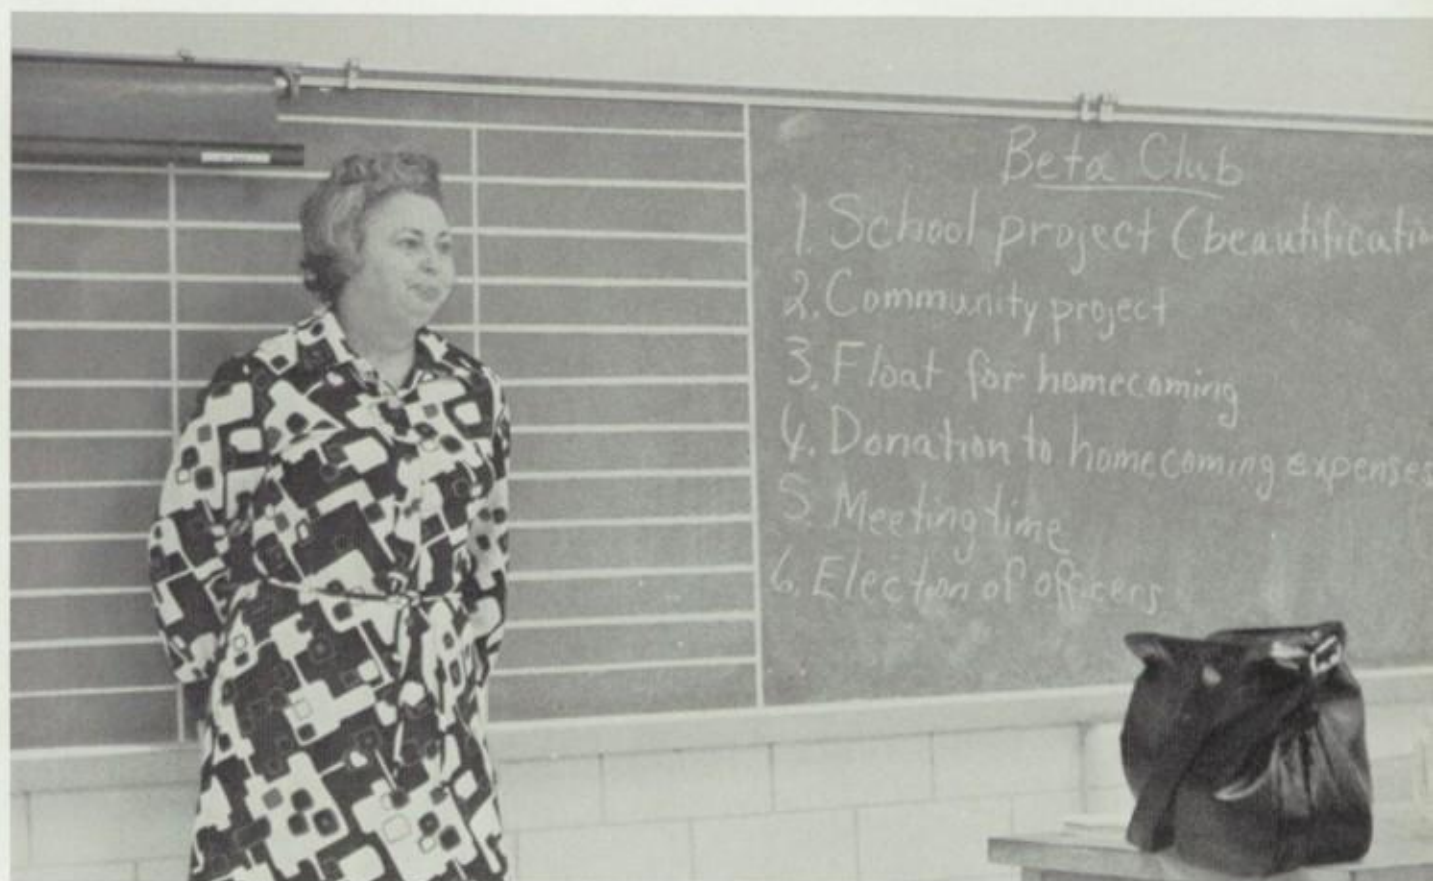 Beta Club
1. School project (beautificatio
2. Community project
3. Float for homecoming
4. Donation to homecoming expenses
5. Meeting time
6. Election of officers